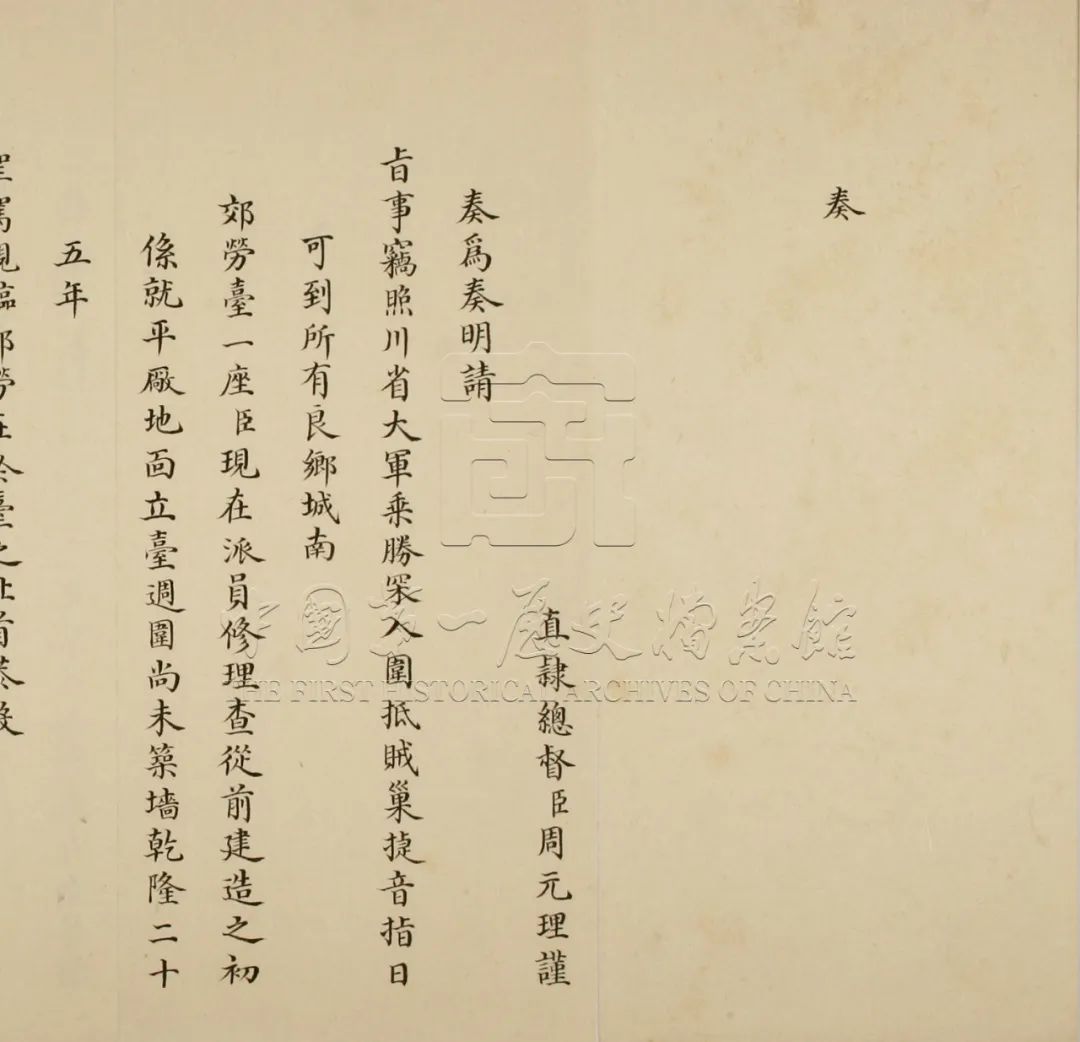 奏
直隸總督臣周元理謹
奏爲奏明請
旨事竊照川省大軍乘勝罙入圍抵賊巢捷音指日
可到所有良鄉城南
郊勞臺一座臣現在派員修理查從前建造之初
係就平厰地面立臺週圍尚未築墻乾隆二十
五年
中國第一歷史檔案館
THE FIRST HISTORICAL ARCHIVES OF CHINA